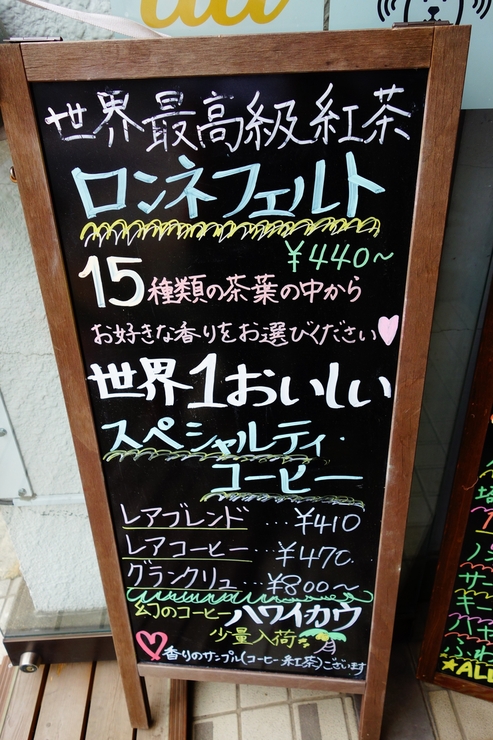 世界最高級紅茶
ロンネフェルト
¥440~
15種類の茶葉の中から
お好きな香りをお選びください
世界1おいしい
スペシャルティ・
コーヒー
レアブレンド…¥410
レアコーヒー…¥470.
グランクリュ…¥800~
幻のコーヒー ハワイカウ
少量入荷
香りのサンプル(コーヒー紅茶)ございます